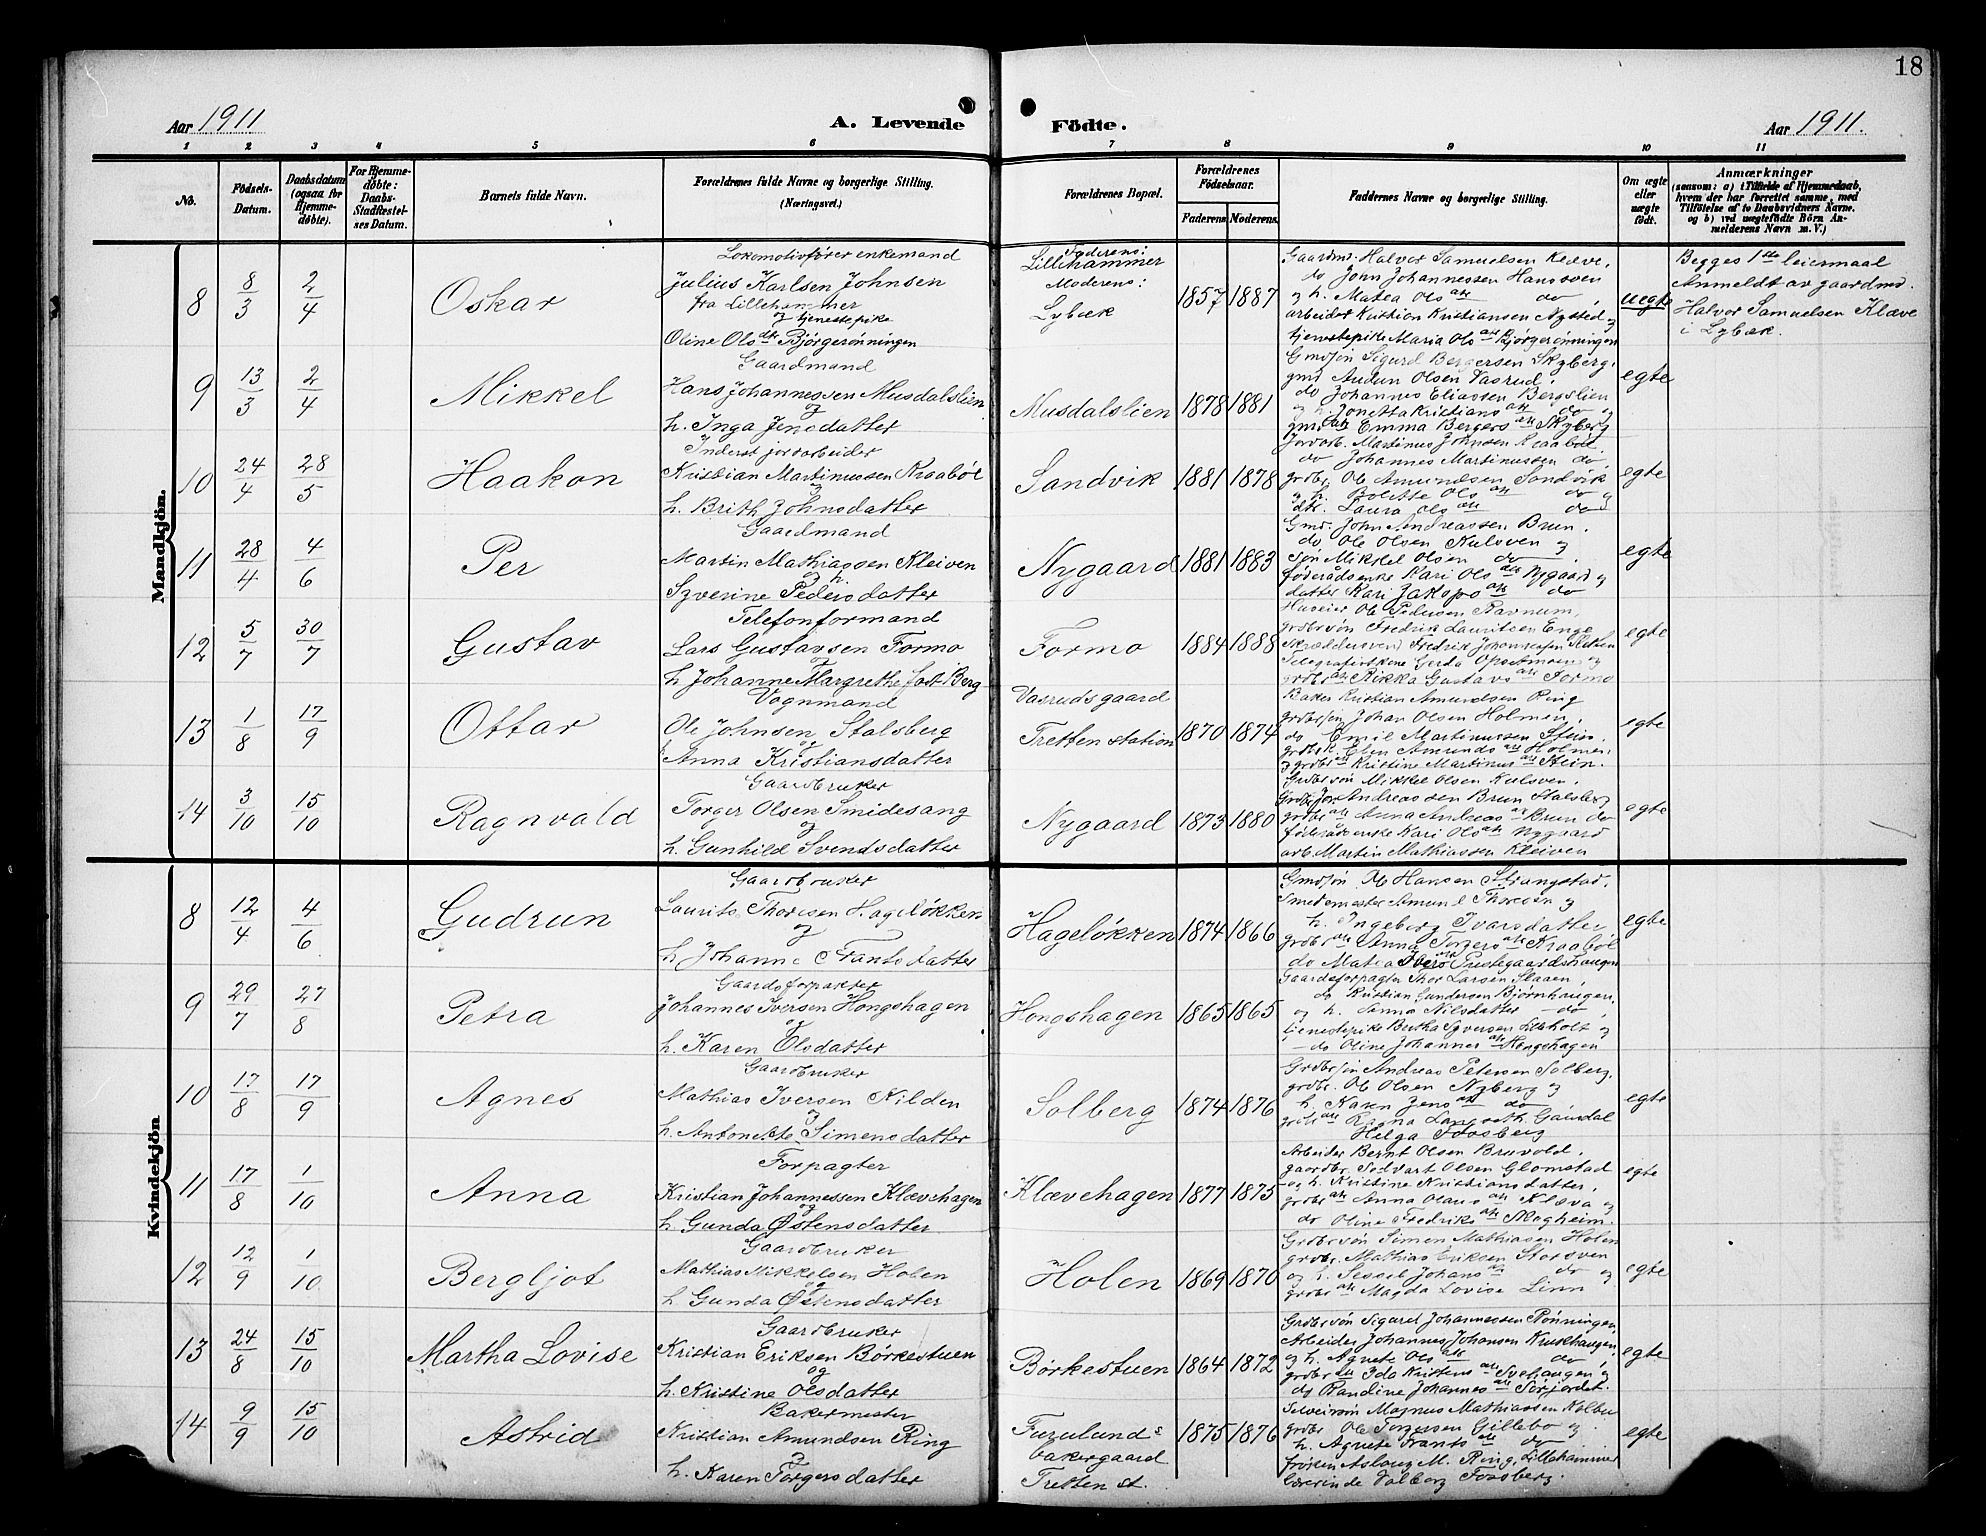 18
Aar 1911
A. Levende
Födte.
Aar 1911.
1 2 3 4 5 6 7 8 9 10 11
No.
Födsels-
Datum.
Daabsdatum
(ogsaa for
Hjemme-
døbte).
For Hjemme-
døbte:
Daabs-
Stadfæstel-
ses Datum.
Barnets fulde Navn.
Forældrenes fulde Navne og borgerlige Stilling.
(Næringsvei.)
Forældrenes Bopæl.
Forældrenes
Födselsaar.
Faderens.
Moderens.
Faddernes Navne og borgerlige Stilling.
Om ægte
eller
uægte
födt.
Anmærkninger
(saasom: a) i Tilfælde af Hjemmedaab,
hvem der har forrettet samme, med
Tilföielse af to Daabsvidners Navne.
og b) ved uægtefödte Börn An-
melderens Navn m. V.)
Mandkjön.
8
8/3
2/4
Oskar
Lokomotivfører enkemand
Julius Karlsen Johnsen
fra Lillehammer
og tjenestepike
Oline Olsdtr Bjørgerønningen
Faderens:
Lillehammer
Moderens:
Lybæk
1857
1887
Gaardm. Halvor Samuelsen Klæve,
do John Johannessen Hansoven
og h. Matea Olsdtr do,
arbeider Kristian Kristiansen Nysted og
tjenestepike Maria Olsdtr Bjørgerønningen
uegte
Begges 1ste leiermaal
Anmeldt av gaardmd.
Halvor Samuelsen Klæve
i Lybæk.
9
13/3
2/4
Mikkel
Gaardmand
Hans Johannessen Musdalslien
og
h. Inga Jensdatter
Musdalslien
1878
1881
Gmdsøn Sigurd Bergersen Skyberg,
gmd Audun Olsen Vasrud,
do Johannes Eliassen Bergslien
og h. Jonetta Kristiansdtr do og
gmddtr Emma Bergersdtr Skyberg
egte
10
24/4
28/5
Haakon
Inderst jordarbeider
Kristian Martinussen Kraabøl
og
h. Brith Johnsdatter
Sandvik
1881
1878
Jordarb. Martinus Johnsen Kraabøl
do Johannes Martinussen do,
grdbr. Ole Amundsen Sandvik
og h. Bolette Olsdtr do og
dtr. Laura Olsdtr do
egte
11
28/4
4/6
Per
Gaardmand
Martin Mathiassen Kleiven
og h.
Syverine Pedersdatter
Nygaard
1881
1883
Gmd. John Andreassen Brun,
do Ole Olsen Kulsven og
søn Mikkel Olsen do,
føderådsenke Kari Olsdtr Nygaard og
datter Kari Jakopsdtr do
egte
12
5/7
30/7
Gustav
Telefonformand
Lars Gustavsen Formo
og
h. Johanne Margrethe født Berg
Formo
1884
1888
Huseier Ole Pedersen Ravnum,
grdbrsøn Fredrik Lauritsen Enge
Skræddersvend Fredrik Johannessen
Telegrafistinne Gerda Opsetmoen og
grdbrdtr Rikka Gustavsdtr Formo
egte
13
1/8
17/9
Ottar
Vognmand
Ole Johnsen Stalsberg
og
h. Anna Kristiansdatter
Vasrudsgaard
Tretten station
1870
1874
Baker Kristian Amundsen Ring
grdbrsøn Johan Olsen Holmen,
do Emil Martinussen Stein,
grdbrk. Elen Amundsdtr Holmen,
og grdbrdtr Kristine Martinusdtr Stein.
egte
14
3/10
15/10
Ragnvald
Gaardbruker
Torger Olsen Smidesang
og
h. Gunhild Svendsdatter
Nygaard
1873
1880
Grdbrsøn Mikkel Olsen Kulsven,
Grdbr. Jon Andreassen Brun Stalsberg
grdbrdtr Anna Andreasdtr Brun do
føderådsenke Kari Olsdtr Nygaard
arb. Martin Mathiassen Kleiven
egte
Kvindekjön
8
12/4
4/6
Gudrun
Gaardbruker
Laurits Thoresen Hageløkken
og
h. Johanne Frantsdatter
Hageløkken
1874
1866
Gmdsøn Ole Hansen Strangstad,
Smedemester Amund Thoresen og
h. Ingeborg Ivarsdatter,
grdbrdtr Anna Torgersdtr Kraabøl
do Matea Iversdtr Prestegaardshaugen
egte
9
29/7
27/8
Petra
Gaardsforpakter
Johannes Iversen Hongshagen
og
h. Karen Olsdatter
Hongshagen
1865
1865
Gaardsforpagter Thor Larsen Slaaen,
do Kristian Gundersen Bjørnhaugen,
og h. Anna Nilsdatter do,
tjenestepike Bertha Syversen Lilleholt og
do Oline Johannesdtr Hongshagen
10
17/8
17/9
Agnes
Gaardbruker
Mathias Iversen Kilden
og
h. Antonette Simensdatter
Solberg
1874
1876
Grdbrsøn Andreas Petersen Solberg,
grdbr. Ole Olsen Nyberg og
h. Karen Jensdtr do
grdbrdtr Ragna Langseth Gausdal
Helga Fossberg
egte
11
17/8
1/10
Anna
Forpagter
Kristian Johannessen Klævehagen
og
h. Gunda Østensdatter
Klævehagen
1877
1875
Arbeider Bernt Olsen Bruvold,
gaardbr. Sedvart Olsen Glomstad
og h. Kristine Kristiansdatter,
grdbrdtr Anna Olausdtr Klæva og
do Oline Fredriksdtr Skogheim.
egte
12
12/9
1/10
Bergljot
Gaardbruker
Mathias Mikkelsen Holen
og
h. Gunda Østensdatter
Holen
1869
1870
Grdbrsøn Simen Mathiassen Holen
grdbr. Mathias Eriksen Storsven
og h. Sessel Johansdtr do og
grdbrdtr Magda Lovise Linn
egte
13
24/8
15/10
Martha Lovise
Gaardbruker
Kristian Eriksen Børkestuen
og
h. Kristine Olsdatter
Børkestuen
1864
1872
Grdbrsøn Sigurd Johannessen Rønningen,
Arbeider Johannes Johansen Krukhaugen,
og h. Agnete Olsdtr do,
grdbrdtr Ida Kristensdtr Svehaugen og
do Randine Johannesdtr Sørjordet.
egte
14
9/9
15/10
Astrid
Bakermester
Kristian Amundsen Ring
og
h. Karen Torgersdatter
Furulund
bakergaard
Tretten st.
1875
1876
Selveirsøn Magnus Mathiassen Kolbu
grdbr. Ole Torgersen Gillebo og
h. Agnete Frantsdtr do
frøken Aslaug M. Ring, Lillehammer
Lærerinde Valborg Fossberg.
egte